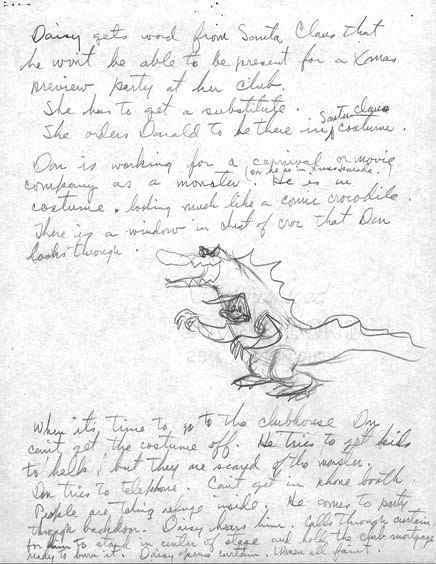 Daisy gets word from Santa Claus that
he won't be able to be present for a Xmas
preview party at her club.
She has to get a substitute.
She orders Donald to be there in Santa Claus costume.
Don is working for a carnival or movie
company as a monster. (or he is in masquerade. He is in
costume, looking much like a comic crocodile.
There is a window in chest of croc that Don
looks through.
When it's time to go to the clubhouse Don
can't get the costume off. He tries to get kids
to help, but they are scared of the monster.
Don tries to telephone. Can't get in phone booth.
People are taking refuge inside. He comes to party
through backdoor. Daisy hears him. Calls through curtain
for him to stand in center of stage and hold the club mortgage
ready to burn it. Daisy opens curtain. Women all faint.